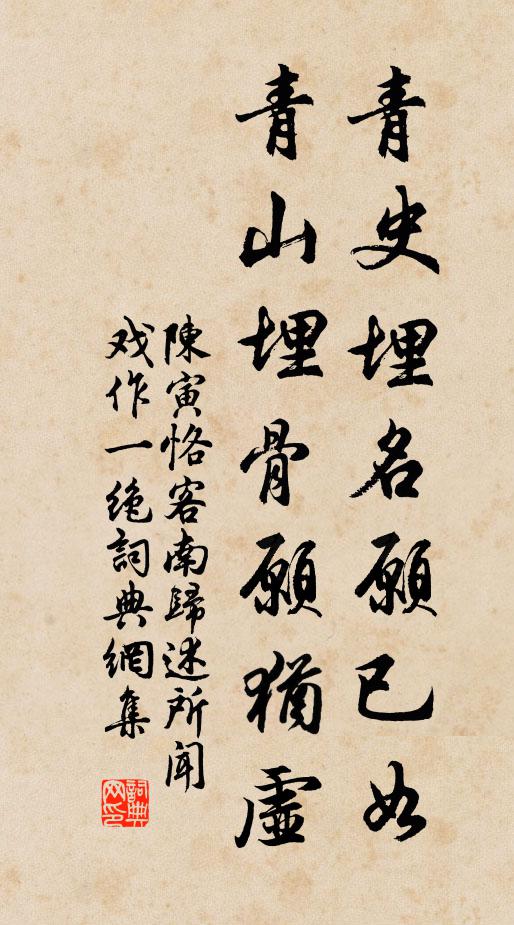 青史埋名願已如
青山埋骨願猶虛
陳寅恪客南歸述所聞
戏作一绝詞典網集
詞典网印